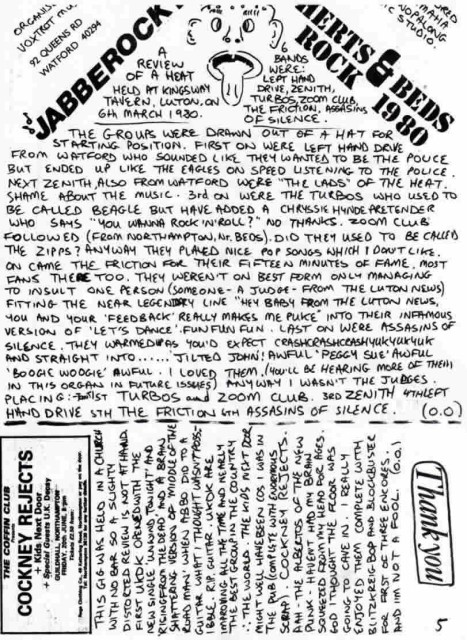 ORGANIS
VOXTROT MU
92 QUEENS RD
WATFORD 40294
JABBEROCKY
HERTS & BEDS
ROCK 1980
HOPALONG
STUDIO.
A
REVIEW
OF A HEAT
HELD AT KINGSWAY
TAVERN, LUTON, ON
6TH MARCH 1980.
6
BANDS
WERE:
LEFT HAND
DRIVE, ZENITH,
TURBOS, ZOOM CLUB,
THE FRICTION, ASSASINS
OF SILENCE.
THE GROUPS WERE DRAWN OUT OF A HAT FOR
STARTING POSITION. FIRST ON WERE LEFT HAND DRIVE
FROM WATFORD WHO SOUNDED LIKE THEY WANTED TO BE THE POLICE
BUT ENDED UP LIKE THE EAGLES ON SPEED LISTENING TO THE POLICE.
NEXT ZENITH, ALSO FROM WATFORD WERE "THE LADS" OF THE HEAT.
SHAME ABOUT THE MUSIC. 3RD ON WERE THE TURBOS WHO USED TO
BE CALLED BEAGLE BUT HAVE ADDED A CHRYSSIE HYNDE PRETENDER
WHO SAYS "YOU WANNA ROCK 'N' ROLL?" NO THANKS. ZOOM CLUB
FOLLOWED (FROM NORTHAMPTON, Nr. BEDS). DID THEY USED TO BE CALLED
THE ZIPPS? ANYWAY THEY PLAYED NICE POP SONGS WHICH I DON'T LIKE.
ON CAME THE FRICTION FOR THEIR FIFTEEN MINUTES OF FAME. MOST
FANS THERE TOO. THEY WEREN'T ON BEST FORM ONLY MANAGING
TO INSULT ONE PERSON (SOMEONE - A JUDGE - FROM THE LUTON NEWS)
FITTING THE NEAR LEGENDARY LINE "HEY BABY FROM THE LUTON NEWS,
YOU AND YOUR 'FEEDBACK' REALLY MAKES ME PUKE" INTO THEIR INFAMOUS
VERSION OF 'LET'S DANCE'. FUN FUN FUN. LAST ON WERE ASSASINS OF
SILENCE. THEY WARMED UP AS YOU'D EXPECT CRASHCRASHCRASHYUKYUKYUK
AND STRAIGHT INTO...... 'JILTED JOHN'! AWFUL 'PEGGY SUE' AWFUL
'BOOGIE WOOGIE' AWFUL. I LOVED THEM. (YOU'LL BE HEARING MORE OF THEM
IN THIS ORGAN IN FUTURE ISSUES) ANYWAY I WASN'T THE JUDGES.
PLACING:- 1st TURBOS and ZOOM CLUB. 3RD ZENITH 4TH LEFT
HAND DRIVE 5TH THE FRICTION 6TH ASSASINS OF SILENCE. (O.O)
THE COFFIN CLUB
COCKNEY REJECTS
+ Kids Next Door
+ Special Guests U.K. Decay
GUILDHALL, NORTHAMPTON
FRIDAY, 20th JUNE, 8 pm
THIS GIG WAS HELD IN A CHURCH
WITH NO BAR AND WAS SLIGHTLY
DISORTED. REVIEW IS NOT AT HAND.
FIRST UKDK OPENED WITH THE
NEW SINGLE 'UNWIND TONIGHT' AND
'RISING FROM THE DEAD' AND A BRAIN
SHATTERING VERSION OF 'MIDDLE OF THE
ROAD MAN' WHEN ABBO DID TO A
GUITAR WHAT I THOUGHT WASN'T POSS-
IBLE. R.I.P. GUITAR. UKDK ARE
IMPROVING ALL THE TIME AND NEARLY
THE BEST GROUP IN THE COUNTRY
.... THE WORLD. THE KIDS NEXT DOOR
MIGHT WELL HAVE BEEN COS I WAS IN
THE PUB (COMPLETE WITH ENORMOUS
SCRAP). COCKNEY REJECTS.
AAH - THE ALBERTOS OF THE NEW
PUNK. I HAVEN'T HAD MY BRAIN
SQUEEZED FROM MY HEAD FOR AGES.
GOD I THOUGH THE FLOOR WAS
GOING TO CAVE IN. I REALLY
ENJOYED THEM COMPLETE WITH
BLITZKREIG BOP AND BLOCKBUSTER
FOR FIRST OF THREE ENCORES.
AND I'M NOT A FOOL. (O.O)
Thank you
5